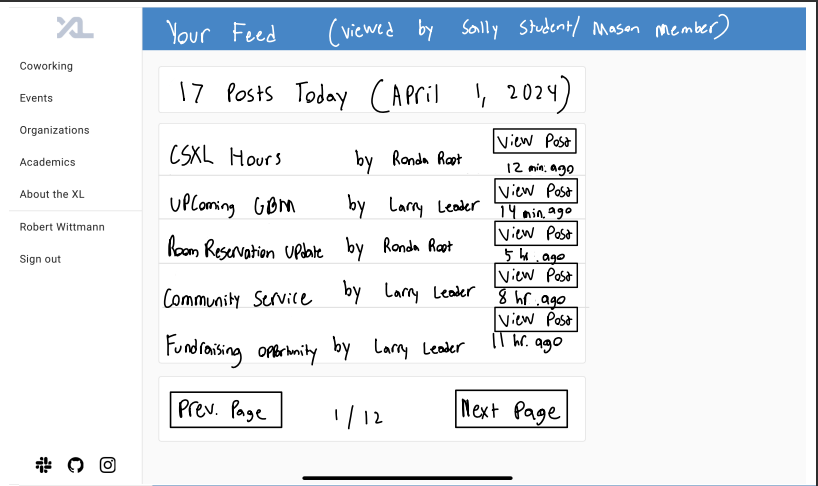 XL
Coworking
Events
Organizations
Academics
About the XL
Robert Wittmann
Sign out
Your Feed (viewed by Sally Student/ Mason member)
17 Posts Today (April 1, 2024)
CSXL Hours by Ronda Root View Post
12 min. ago
Upcoming GBM by Larry Leader View Post
14 min. ago
Room Reservation Update by Ronda Root View Post
5 hr. ago
Community Service by Larry Leader View Post
8 hr. ago
Fundraising opportunity by Larry Leader View Post
11 hr. ago
Prev. Page 1/12 Next Page